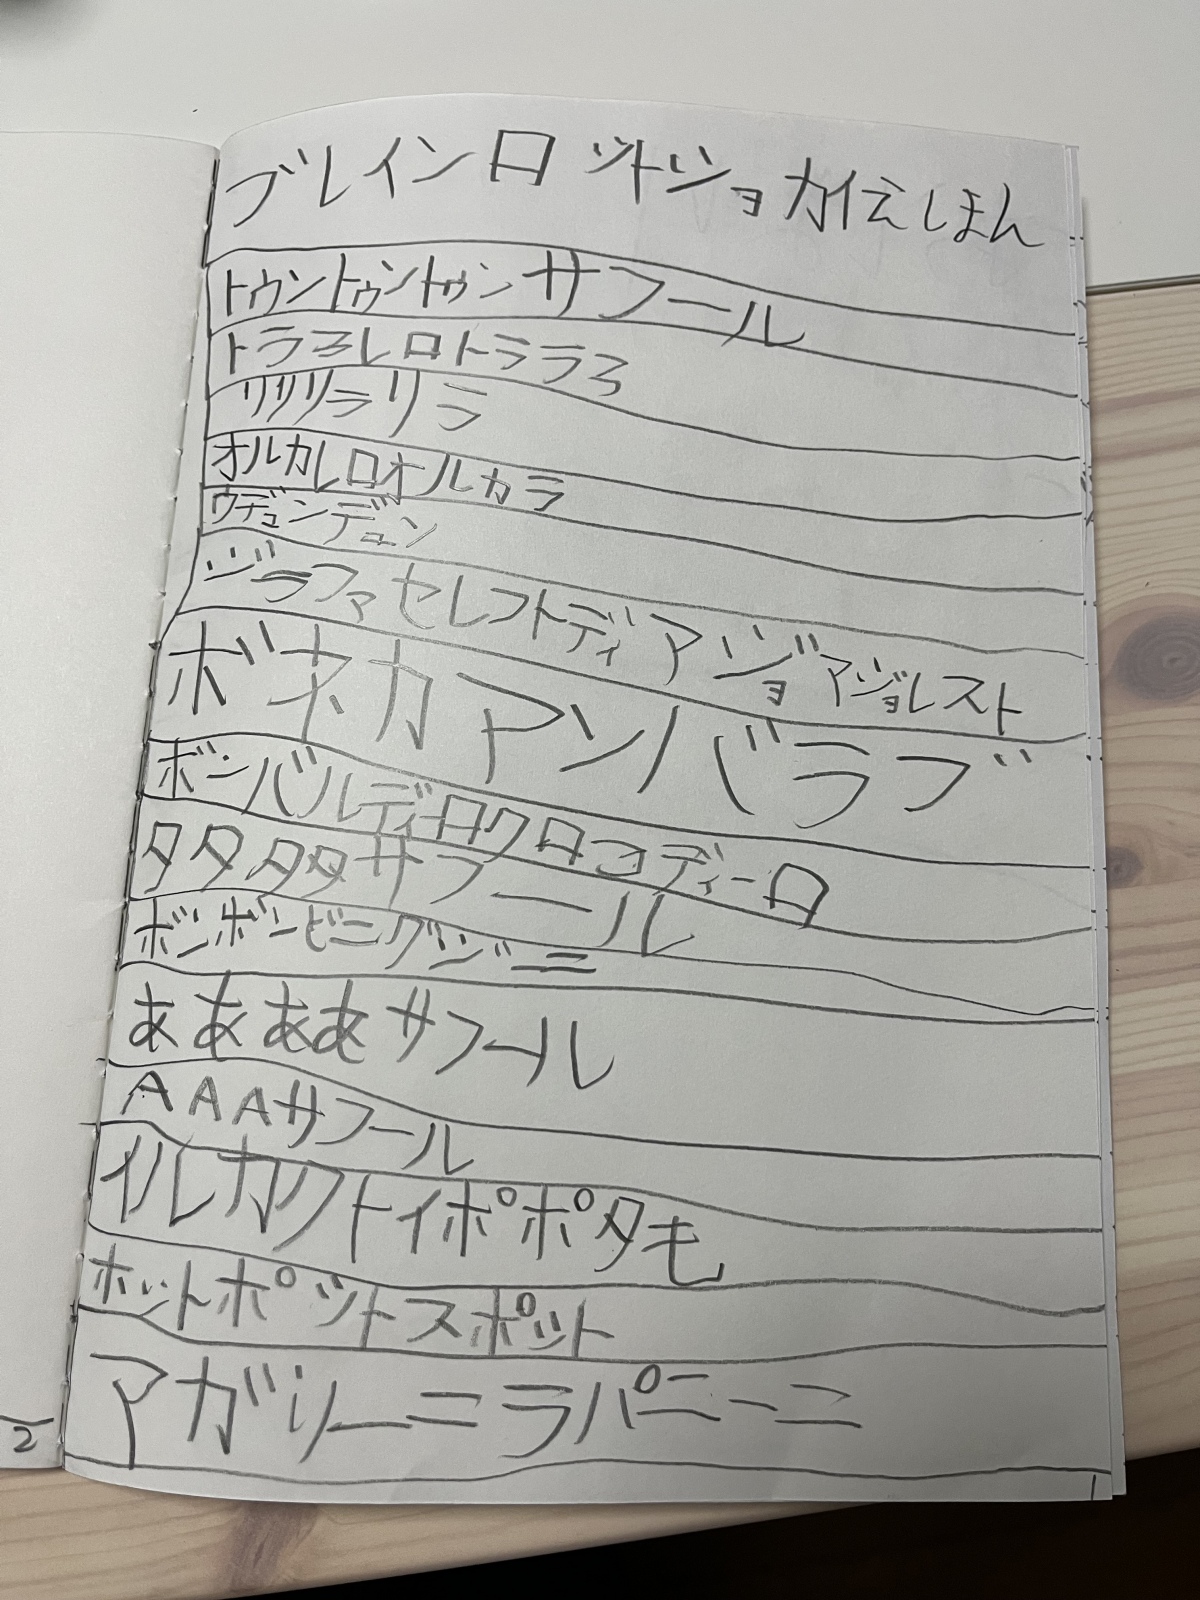 ブレインロットショカイえしほん
トゥントゥントゥンサフール
トララレロトラララ
リリリラリラ
オルカレロオルカラ
ウデュンデュン
ジラファセレフトディアジョアジョレスト
ボネカアンバラブ
ボンバルディロクロコディーロ
タタタタサフール
ボンボンビニグジニ
ああああサフール
AAAサフール
イルカクトイポポタモ
ホットポットスポット
マガリーニラパニーニ
2
1